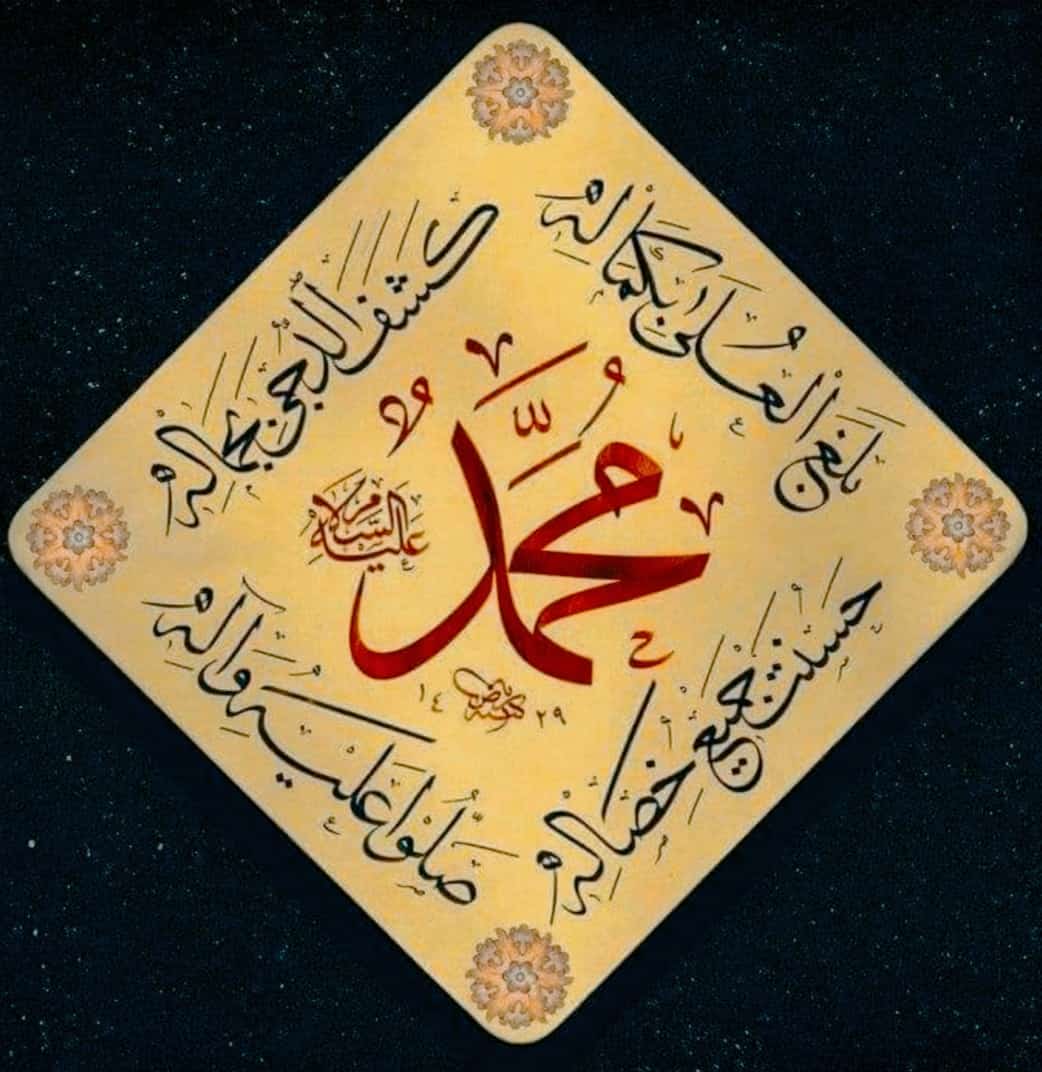 بَلَغَ الْعُلَى بِكَمَالِهِ
كَشَفَ الدُّجَى بِجَمَالِهِ
حَسُنَتْ جَمِيعُ خِصَالِهِ
صَلُّوا عَلَيْهِ وَآلِهِ
مُحَمَّدٌ
عَلَيْهِ السَّلَامُ
١٤٢٩